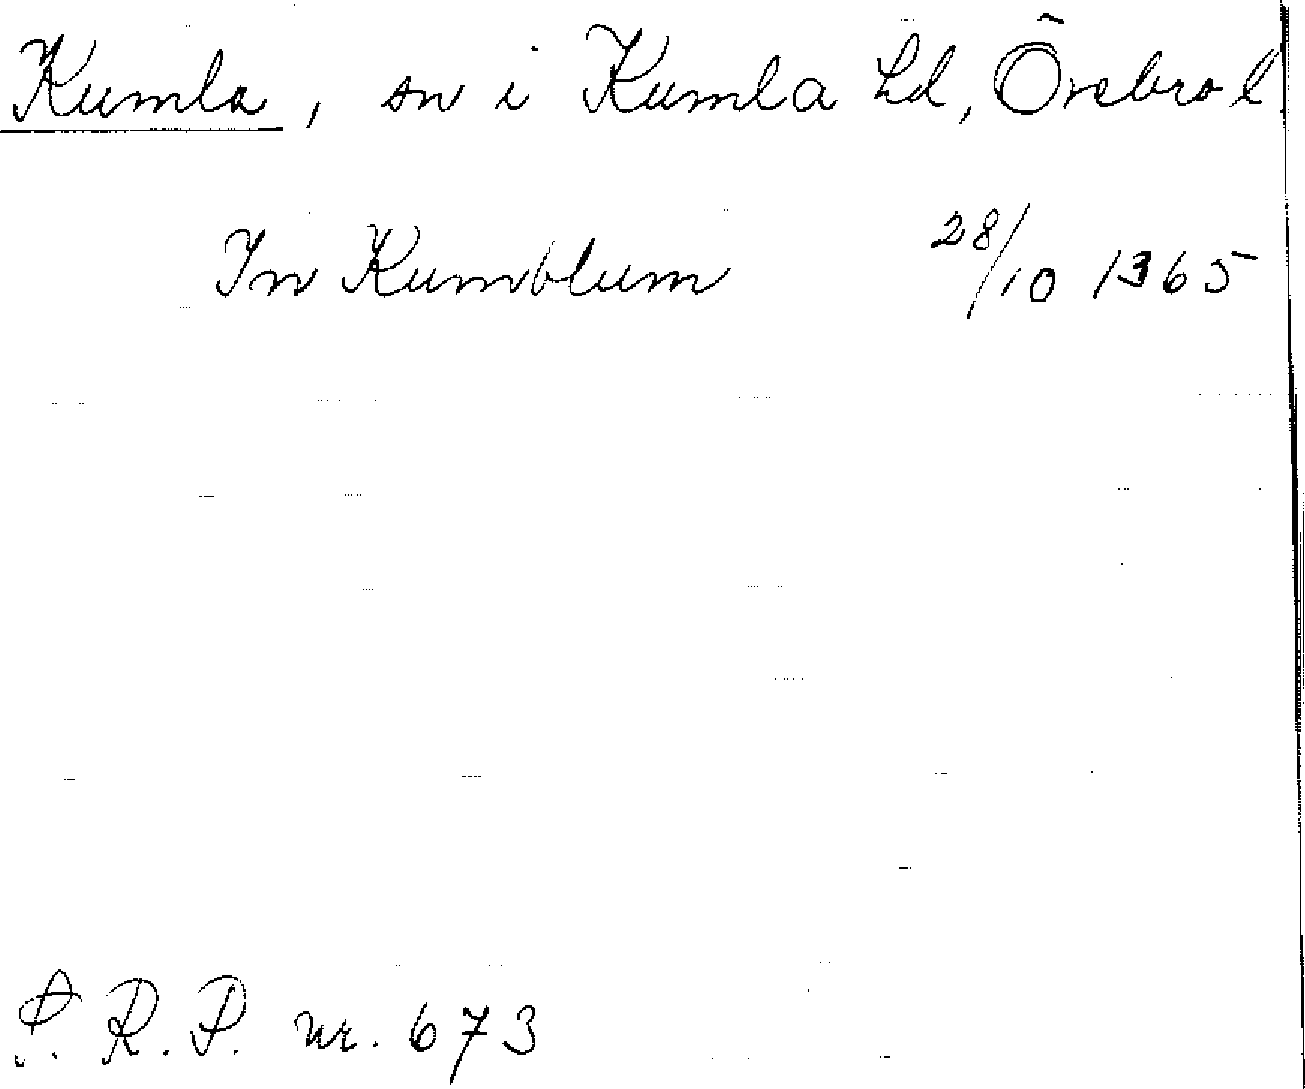 Kumla, sn i Kumla hd, Örebro l
In Kumblum 28/10 1365
S. R. P. nr. 673